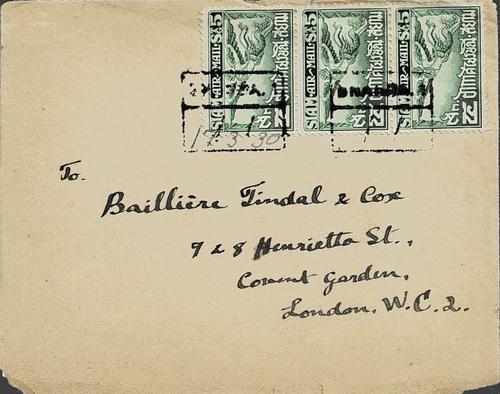 SIAM AIR-MAIL S. 5
SIAM AIR-MAIL S. 5
SIAM AIR-MAIL S. 5
17.3.30
To.
Baillière Tindal & Cox
7 & 8 Henrietta St.,
Covent Garden,
London. W.C.2.